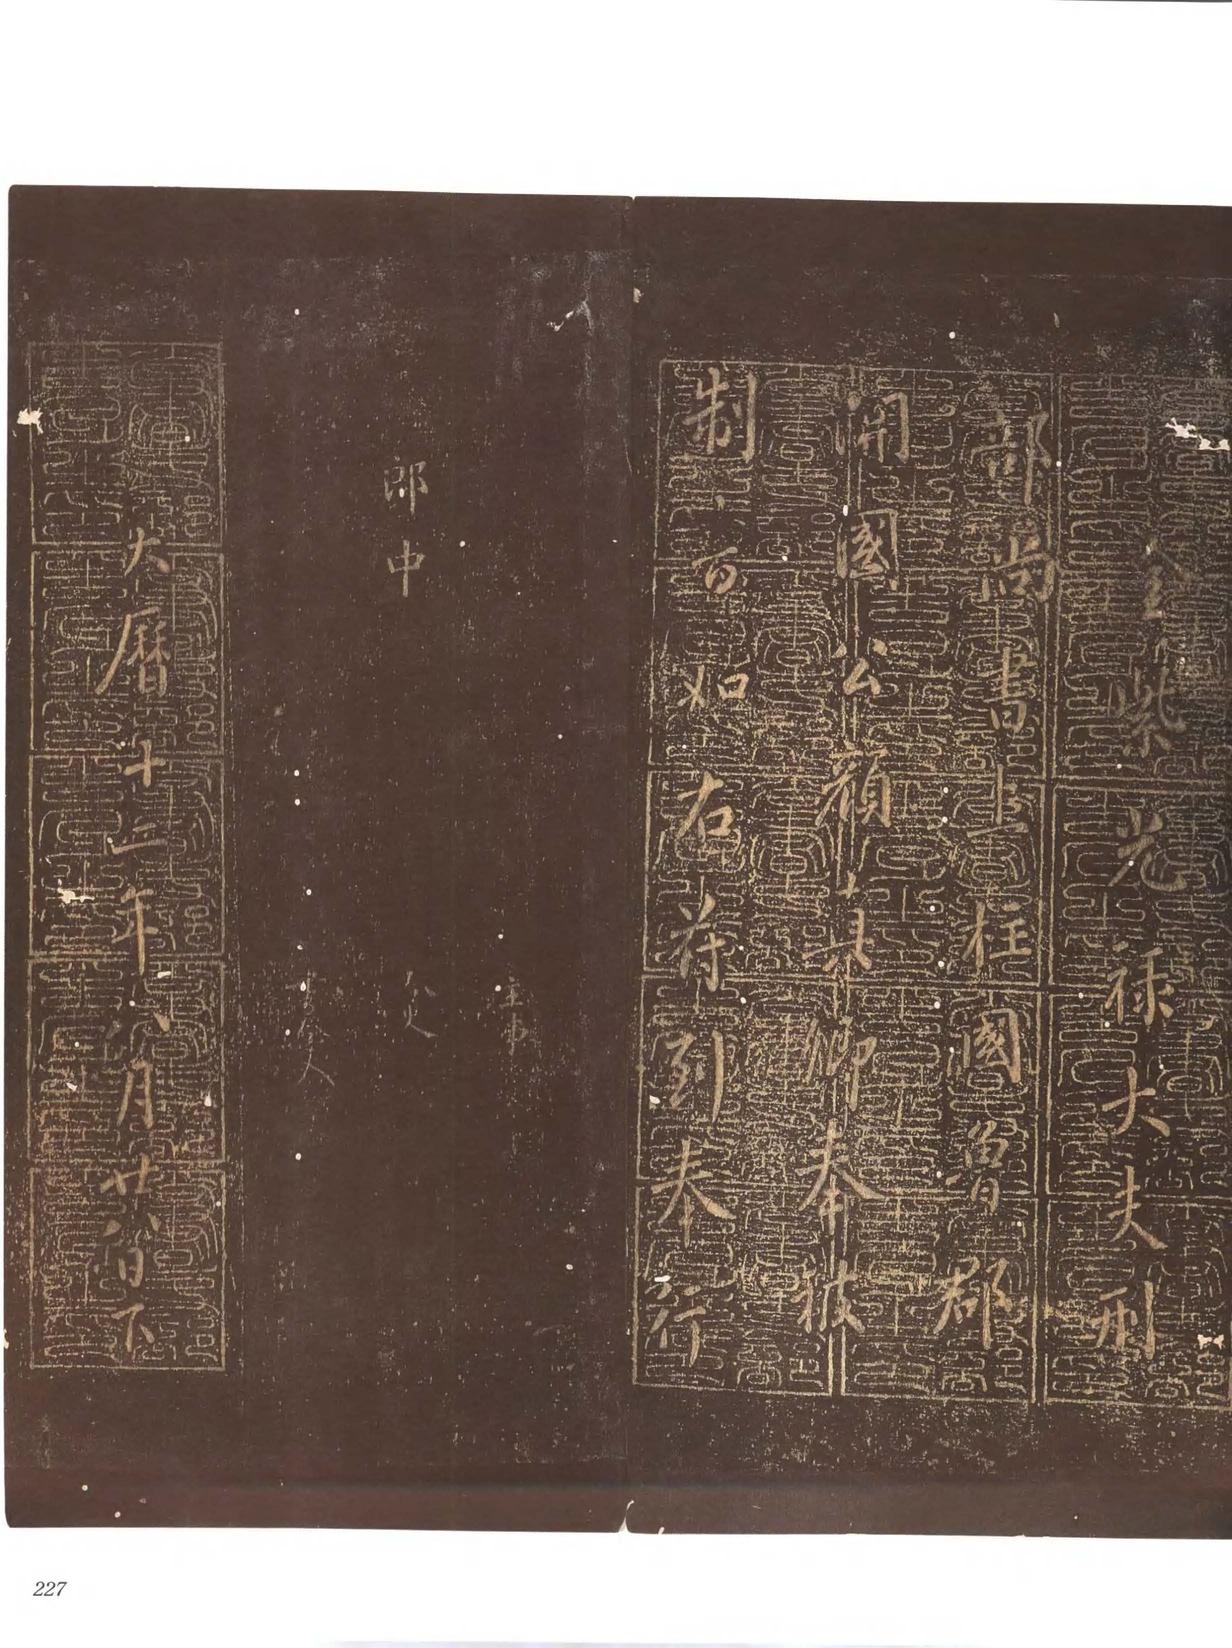 金紫光祿大夫刑
部尚書上柱國魯郡
開國公顏真卿奉被
制書如右苻到奉行
主事
郎中
令史
書令人
大曆十二年八月廿八日下
227